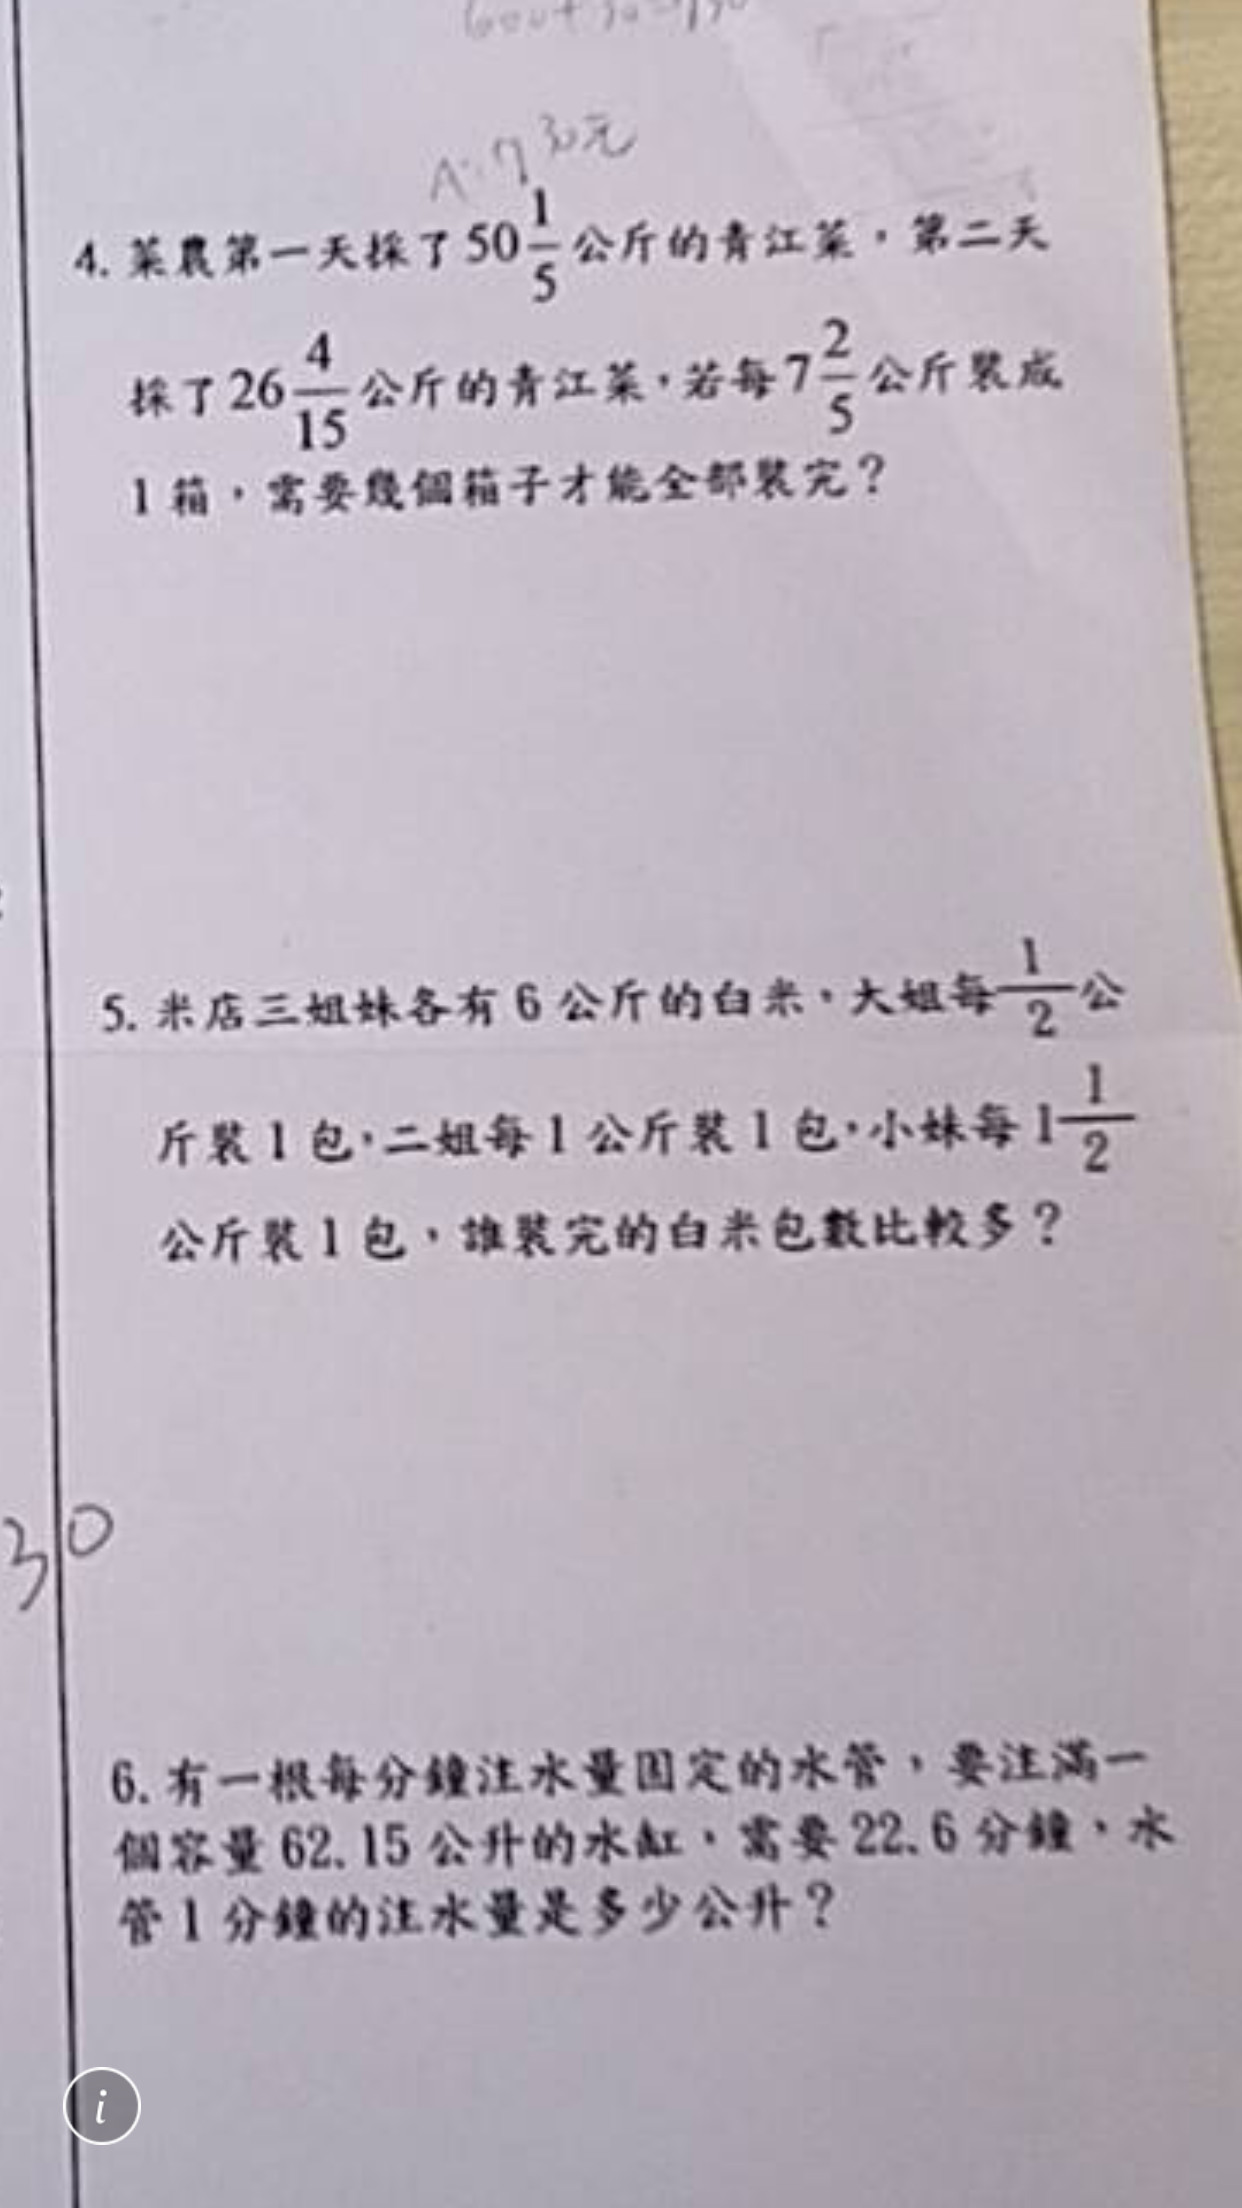 A:730元
4. 菜農第一天採了50 1/5 公斤的青江菜，第二天
採了26 4/15 公斤的青江菜，若每7 2/5 公斤裝成
1箱，需要幾個箱子才能全部裝完？
5. 米店三姐妹各有6公斤的白米，大姐每 1/2 公
斤裝1包，二姐每1公斤裝1包，小妹每1 1/2
公斤裝1包，誰裝完的白米包數比較多？
30
6. 有一根每分鐘注水量固定的水管，要注滿一
個容量62.15公升的水缸，需要22.6分鐘，水
管1分鐘的注水量是多少公升？
i